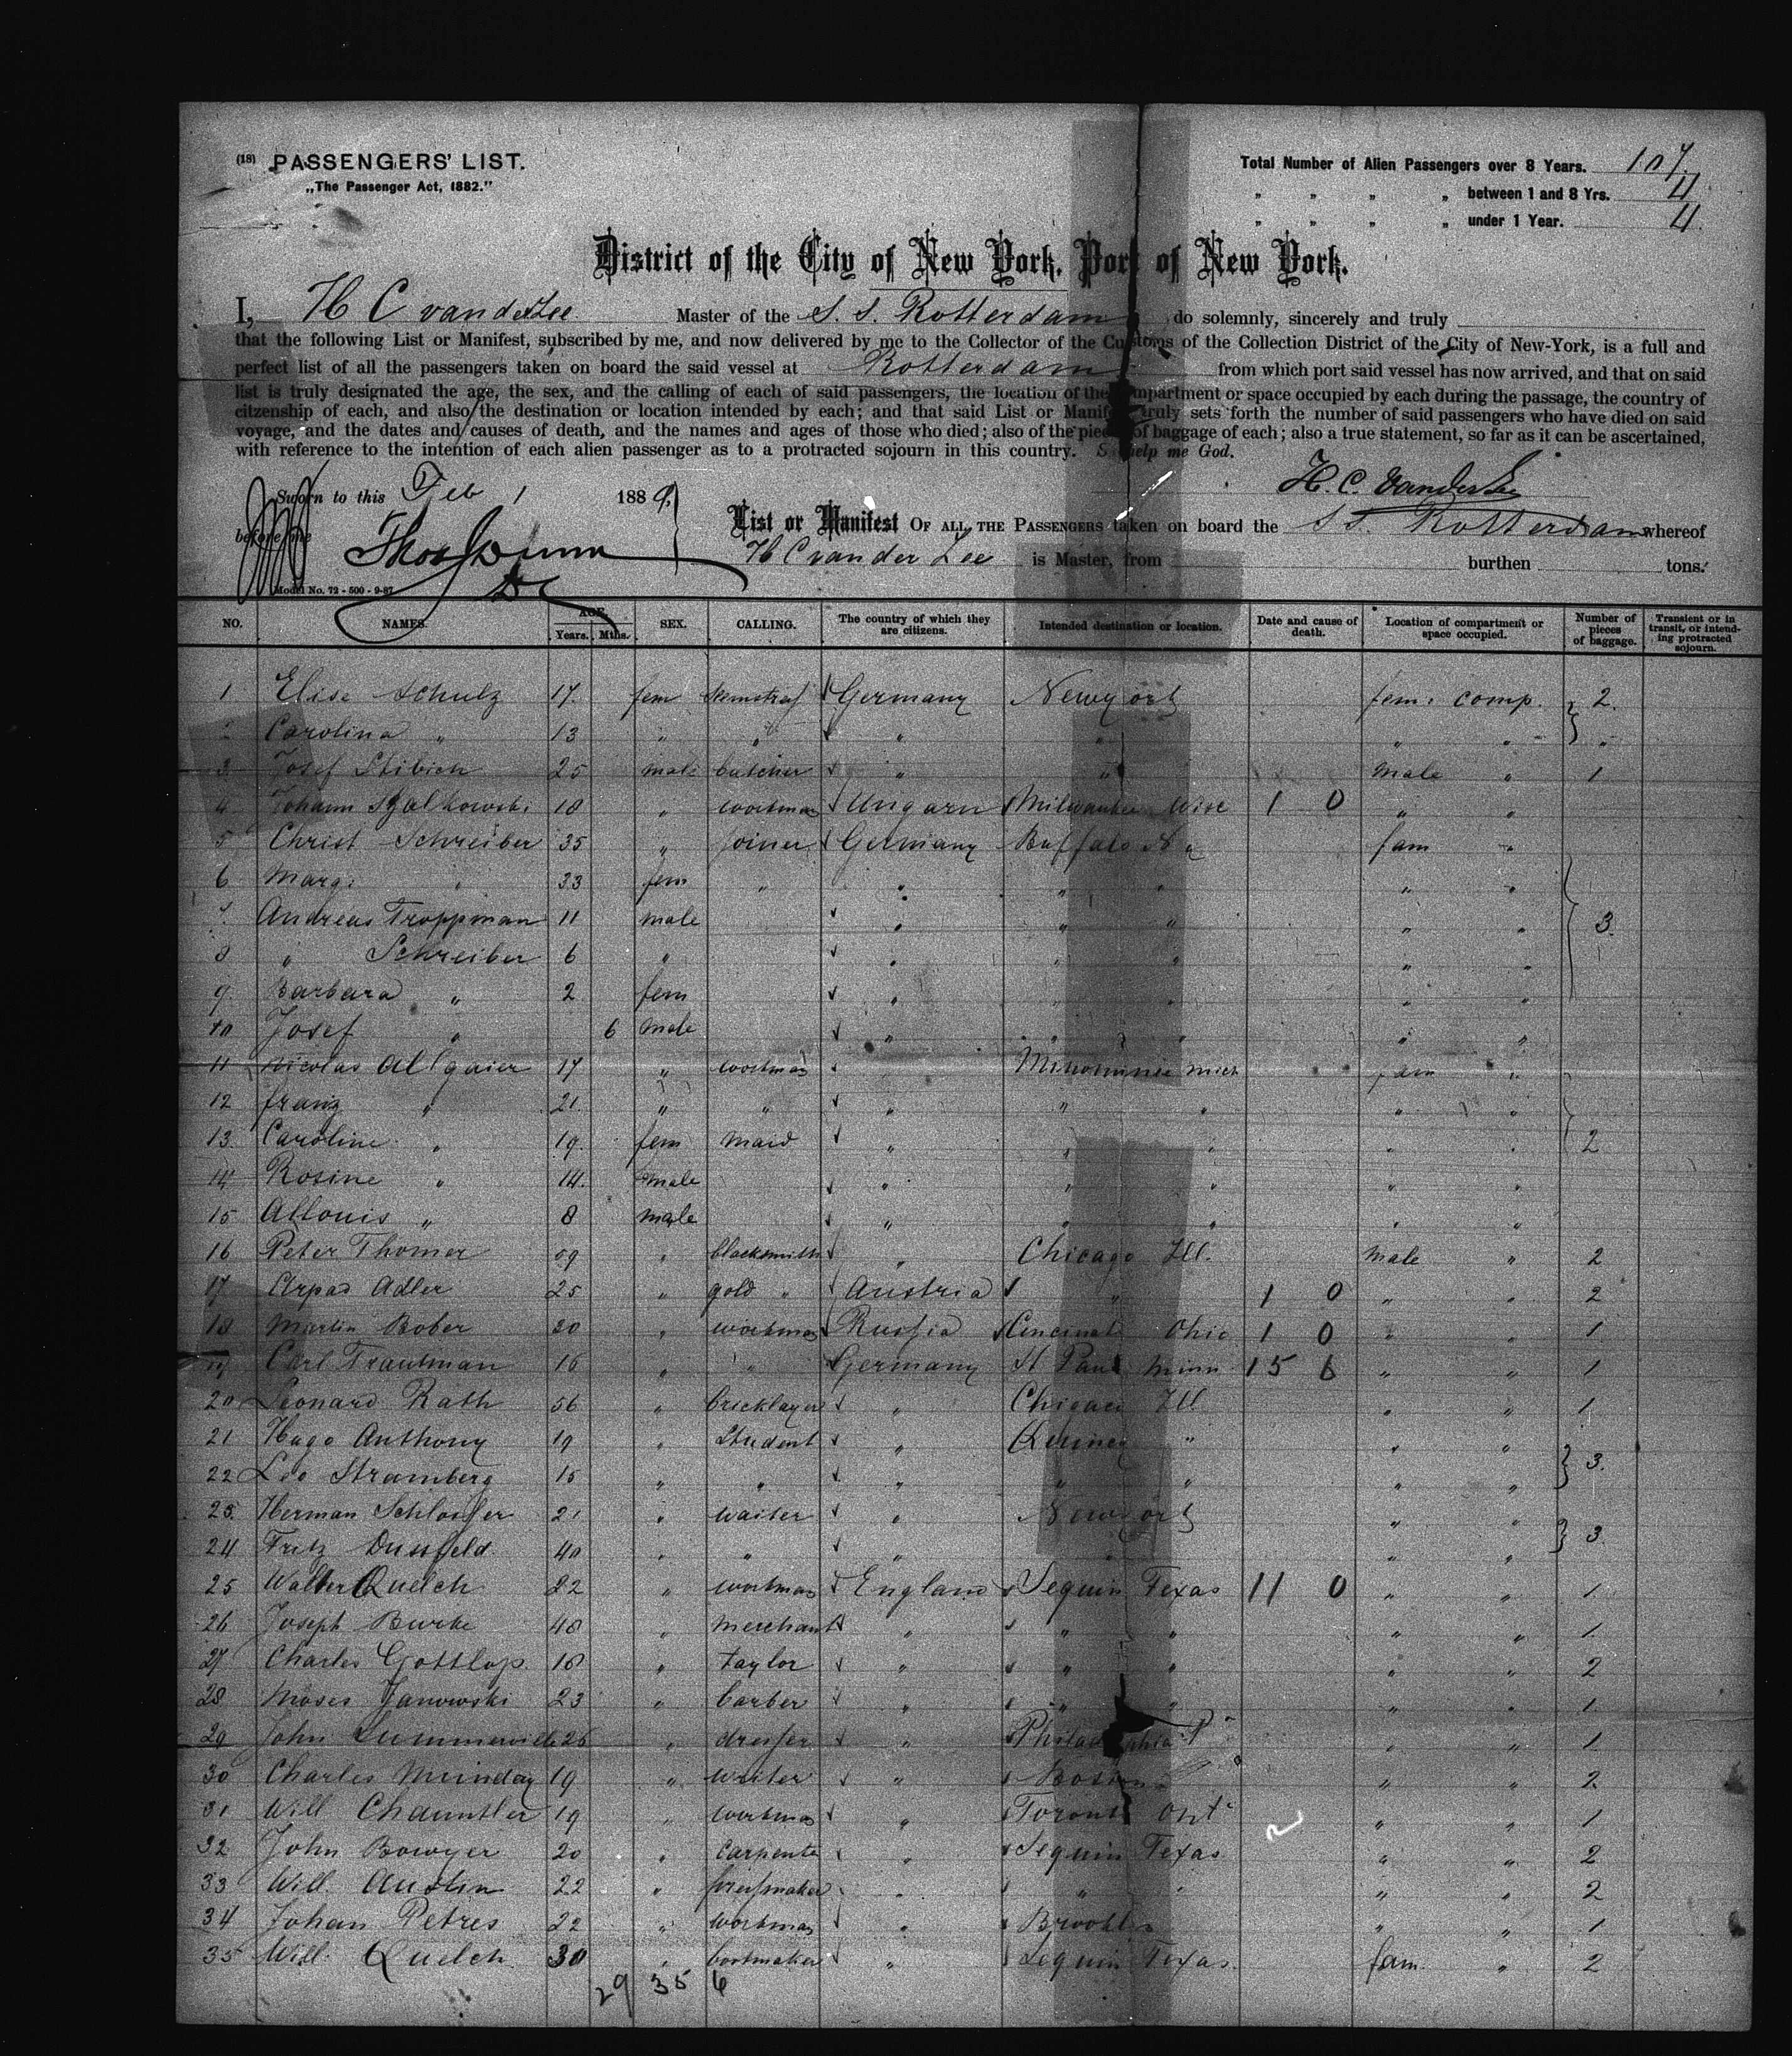 (18) PASSENGERS' LIST.
„The Passenger Act, 1882."
Total Number of Alien Passengers over 8 Years. 107
„ „ „ „ between 1 and 8 Yrs. 4
„ „ „ „ under 1 Year. 4
District of the City of New York, Port of New York.
I, H C vanderLee Master of the S. S. Rotterdam do solemnly, sincerely and truly
that the following List or Manifest, subscribed by me, and now delivered by me to the Collector of the Customs of the Collection District of the City of New-York, is a full and
perfect list of all the passengers taken on board the said vessel at Rotterdam from which port said vessel has now arrived, and that on said
list is truly designated the age, the sex, and the calling of each of said passengers, the location of the compartment or space occupied by each during the passage, the country of
citzenship of each, and also the destination or location intended by each; and that said List or Manifest truly sets forth the number of said passengers who have died on said
voyage, and the dates and causes of death, and the names and ages of those who died; also of the pieces of baggage of each; also a true statement, so far as it can be ascertained,
with reference to the intention of each alien passenger as to a protracted sojourn in this country. So help me God.
H. C. VanderLee
Sworn to this Feb 1 1889
before me Thos Dunn
List or Manifest OF ALL THE PASSENGERS taken on board the S S. Rotterdam whereof
H C van der Lee is Master, from burthen tons.
Model No. 72 - 500 - 9-87
NO. NAMES. AGE. Years. Mths. SEX. CALLING. The country of which they are citizens. Intended destination or location. Date and cause of death. Location of compartment or space occupied. Number of pieces of baggage. Transient or in transit, or intending protracted sojourn.
1 Elise Schulz 17. fem Germany Newyork fem. comp. 2.
2 Carolina „ 13 „ „ „ „ „ „ „
3 Josef Stibich 25 male butcher „ „ male „ 1
4 Johann 18 „ workman Ungarn Milwaukee Wisc 1 0 „ „
5 Christ Schreiber 35 „ joiner Germany Buffalo N Y fam „
6 Marg. „ 33 fem „ „ „ „ „ „
7 Andreas Troppman 11 male „ „ „ „ „ 3.
8 „ Schreiber 6 „ „ „ „ „ „
9 Barbara „ 2 fem „ „ „ „ „
10 Josef „ 6 male „ „ „ „ „
11 Nicolas Allgaier 17 „ workman Mich fam „
12 franz „ 21. „ „ „ „ „ „ „
13 Caroline „ 19. fem maid „ „ „ „ „ 2
14 Rosine „ 14. male „ „ „ „ „
15 Allouis „ 8 male „ „ „ „ „
16 Peter Thomer 59 „ blacksmith „ Chicago Ill. male „ 2
17 Arpad Adler 25 „ gold „ Austria „ 1 0 „ „ 2
18 Martin Bober 20 „ workman Russia Cincinati Ohio 1 0 „ „ 1
19 Carl Trautman 16 „ „ Germany St Paul Minn 15 6 „ „ 1
20 Leonard Rath 56 „ bricklayer „ Chicago Ill „ „ 1
21 Hugo Anthony 19 „ Student „ Quincy „ „ „
22 Leo Stramberg 15 „ „ „ „ „ „ „ 3.
23. Herman Schlosser 21 „ waiter „ Newyork „ „
24 Fritz 40 „ „ „ „ „ „ 3.
25 Walter Quelch 22 „ workman England Seguin Texas 11 0 „ „ 1.
26 Joseph Burke 48 „ merchant „ „ „ „ „ 1.
27 Charles Gottlop. 18 „ taylor „ „ „ „ „ 2
28 Moses Janowski 23 „ barber „ „ „ „ „ 1.
29 John 26 „ dresser „ Philadelphia Pa „ „ 1.
30 Charles Munday 19 „ writer „ Boston „ „ 2
31 Will Chauntler 19 „ workman „ Toronto Ont „ „ 1
32 John Bowyer 20 „ Carpenter „ Seguin Texas „ „ 2
33 Will. Austin 22 „ „ „ „ „ „ 2
34 Johan Petres 22 „ workman „ „ „ 1
35 Will. Quelch 30 „ bootmaker „ Seguin Texas. fam „ 2
29 35 6